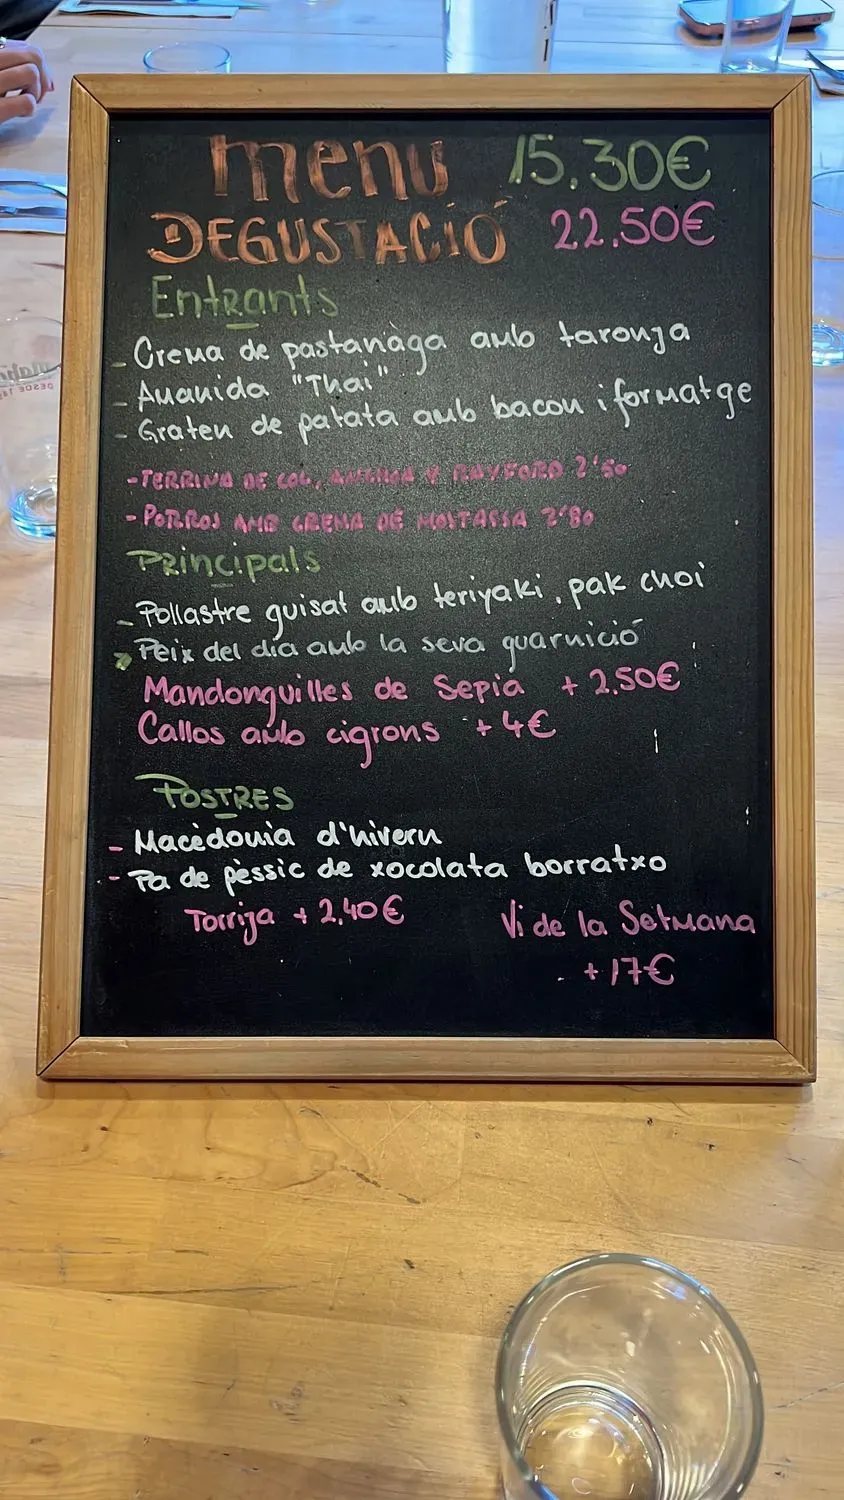 menu 15.30€
DEGUSTACIÓ 22.50€
Entrants
- Crema de pastanàga amb taronja
- Amanida "Thai"
- Graten de patata amb bacon i formatge
- TERRINA DE COL, Y 2'50
- PORROS AMB CREMA DE MOSTASSA 2'80
Principals
- Pollastre guisat amb teriyaki, pak choi
- Peix del dia amb la seva guarnició
Mandonguilles de Sepia + 2,50€
Callos amb cigrons + 4€
POSTRES
- Macèdonia d'hivern
- Pa de pèssic de xocolata borratxo
Torrija + 2,40€
Vi de la Setmana
+ 17€
DESDE